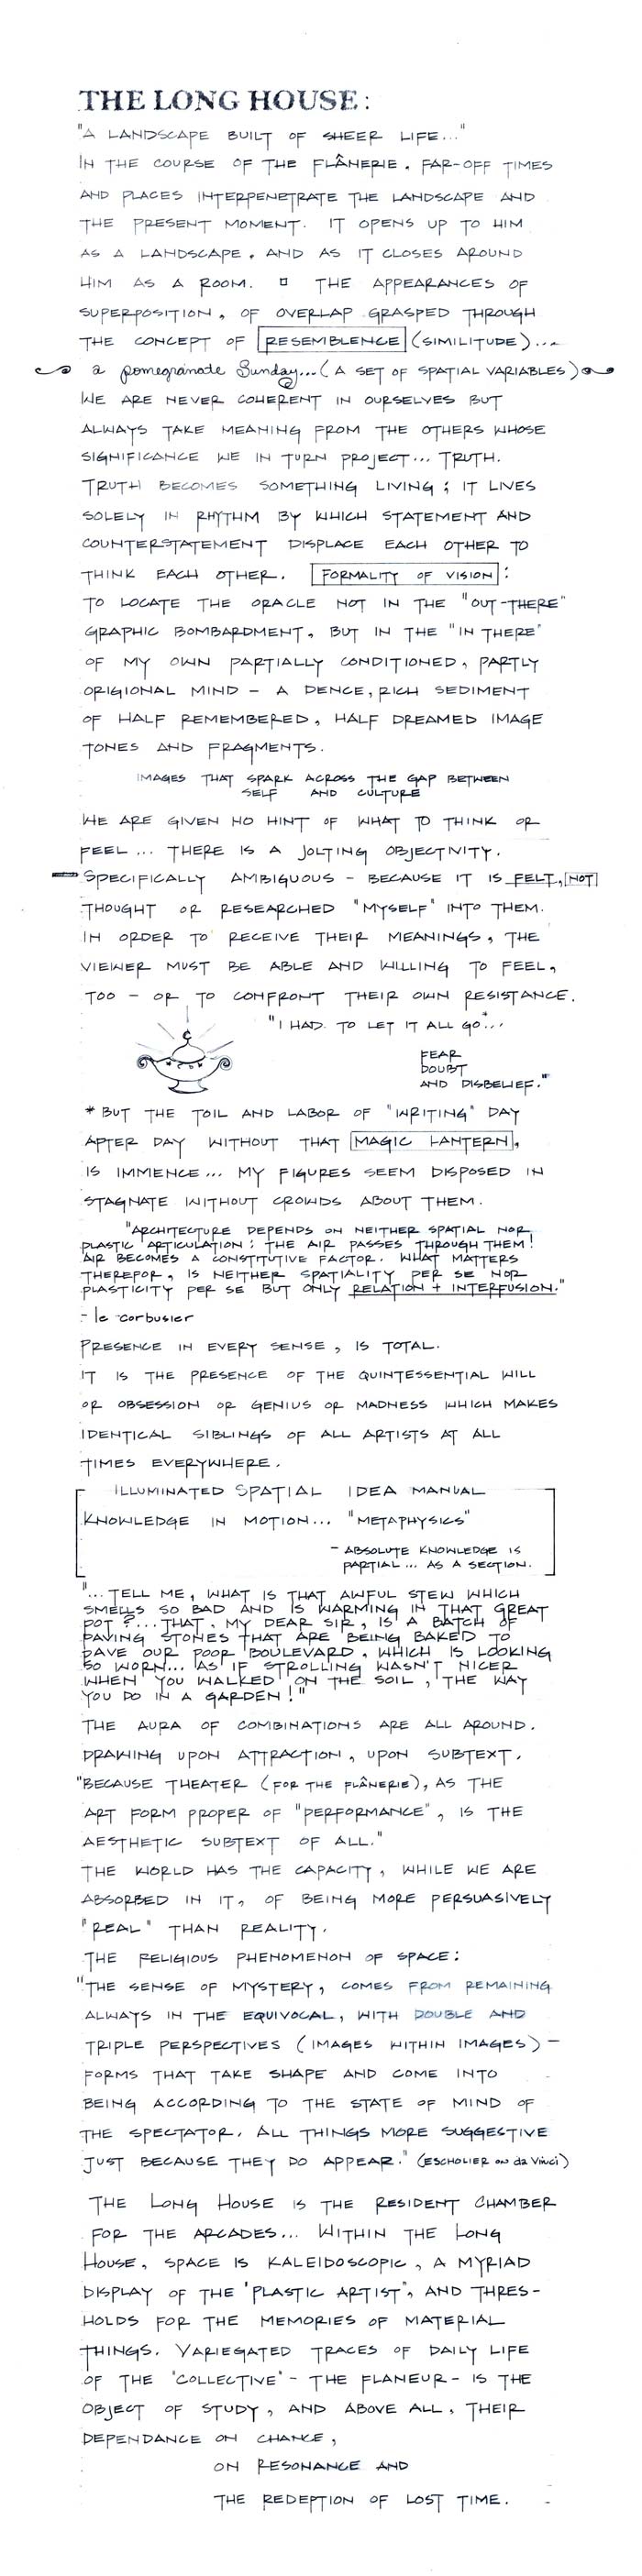 THE LONG HOUSE:
"A LANDSCAPE BUILT OF SHEER LIFE..."
IN THE COURSE OF THE FLÂNERIE, FAR-OFF TIMES
AND PLACES INTERPENETRATE THE LANDSCAPE AND
THE PRESENT MOMENT. IT OPENS UP TO HIM
AS A LANDSCAPE, AND AS IT CLOSES AROUND
HIM AS A ROOM. □ THE APPEARANCES OF
SUPERPOSITION, OF OVERLAP GRASPED THROUGH
THE CONCEPT OF RESEMBLENCE (SIMILITUDE)...
a pomegranate Sunday...(A SET OF SPATIAL VARIABLES)
WE ARE NEVER COHERENT IN OURSELVES BUT
ALWAYS TAKE MEANING FROM THE OTHERS WHOSE
SIGNIFICANCE WE IN TURN PROJECT... TRUTH.
TRUTH BECOMES SOMETHING LIVING; IT LIVES
SOLELY IN RHYTHM BY WHICH STATEMENT AND
COUNTERSTATEMENT DISPLACE EACH OTHER TO
THINK EACH OTHER. FORMALITY OF VISION:
TO LOCATE THE ORACLE NOT IN THE "OUT-THERE"
GRAPHIC BOMBARDMENT, BUT IN THE "IN THERE"
OF MY OWN PARTIALLY CONDITIONED, PARTLY
ORIGIONAL MIND - A DENCE, RICH SEDIMENT
OF HALF REMEMBERED, HALF DREAMED IMAGE
TONES AND FRAGMENTS.
IMAGES THAT SPARK ACROSS THE GAP BETWEEN
SELF AND CULTURE
WE ARE GIVEN NO HINT OF WHAT TO THINK OR
FEEL... THERE IS A JOLTING OBJECTIVITY.
SPECIFICALLY AMBIGUOUS - BECAUSE IT IS FELT, NOT
THOUGHT OR RESEARCHED "MYSELF" INTO THEM.
IN ORDER TO RECEIVE THEIR MEANINGS, THE
VIEWER MUST BE ABLE AND WILLING TO FEEL,
TOO - OR TO CONFRONT THEIR OWN RESISTANCE.
"I HAD TO LET IT ALL GO"...
FEAR
DOUBT
AND DISBELIEF."
* BUT THE TOIL AND LABOR OF "WRITING" DAY
AFTER DAY WITHOUT THAT MAGIC LANTERN,
IS IMMENCE... MY FIGURES SEEM DISPOSED IN
STAGNATE WITHOUT CROWDS ABOUT THEM.
"ARCHITECTURE DEPENDS ON NEITHER SPATIAL NOR
PLASTIC ARTICULATION: THE AIR PASSES THROUGH THEM!
AIR BECOMES A CONSTITUTIVE FACTOR. WHAT MATTERS
THEREFOR, IS NEITHER SPATIALITY PER SE NOR
PLASTICITY PER SE BUT ONLY RELATION + INTERFUSION."
- le corbusier
PRESENCE IN EVERY SENSE, IS TOTAL.
IT IS THE PRESENCE OF THE QUINTESSENTIAL WILL
OR OBSESSION OR GENIUS OR MADNESS WHICH MAKES
IDENTICAL SIBLINGS OF ALL ARTISTS AT ALL
TIMES EVERYWHERE.
ILLUMINATED SPATIAL IDEA MANUAL
KNOWLEDGE IN MOTION... "METAPHYSICS"
- ABSOLUTE KNOWLEDGE IS
PARTIAL... AS A SECTION.
"...TELL ME, WHAT IS THAT AWFUL STEW WHICH
SMELLS SO BAD AND IS WARMING IN THAT GREAT
POT?...THAT, MY DEAR SIR, IS A BATCH OF
PAVING STONES THAT ARE BEING BAKED TO
PAVE OUR POOR BOULEVARD, WHICH IS LOOKING
SO WORN... AS IF STROLLING WASN'T NICER
WHEN YOU WALKED ON THE SOIL, THE WAY
YOU DO IN A GARDEN!"
THE AURA OF COMBINATIONS ARE ALL AROUND.
DRAWING UPON ATTRACTION, UPON SUBTEXT.
"BECAUSE THEATER (FOR THE FLÂNERIE), AS THE
ART FORM PROPER OF "PERFORMANCE", IS THE
AESTHETIC SUBTEXT OF ALL."
THE WORLD HAS THE CAPACITY, WHILE WE ARE
ABSORBED IN IT, OF BEING MORE PERSUASIVELY
"REAL" THAN REALITY.
THE RELIGIOUS PHENOMENON OF SPACE:
"THE SENSE OF MYSTERY, COMES FROM REMAINING
ALWAYS IN THE EQUIVOCAL, WITH DOUBLE AND
TRIPLE PERSPECTIVES (IMAGES WITHIN IMAGES) -
FORMS THAT TAKE SHAPE AND COME INTO
BEING ACCORDING TO THE STATE OF MIND OF
THE SPECTATOR. ALL THINGS MORE SUGGESTIVE
JUST BECAUSE THEY DO APPEAR." (ESCHOLIER ON da Vinci)
THE LONG HOUSE IS THE RESIDENT CHAMBER
FOR THE ARCADES... WITHIN THE LONG
HOUSE, SPACE IS KALEIDOSCOPIC, A MYRIAD
DISPLAY OF THE 'PLASTIC ARTIST', AND THRES-
HOLDS FOR THE MEMORIES OF MATERIAL
THINGS. VARIEGATED TRACES OF DAILY LIFE
OF THE 'COLLECTIVE' - THE FLANEUR - IS THE
OBJECT OF STUDY, AND ABOVE ALL, THEIR
DEPENDANCE ON CHANCE,
ON RESONANCE AND
THE REDEPTION OF LOST TIME.